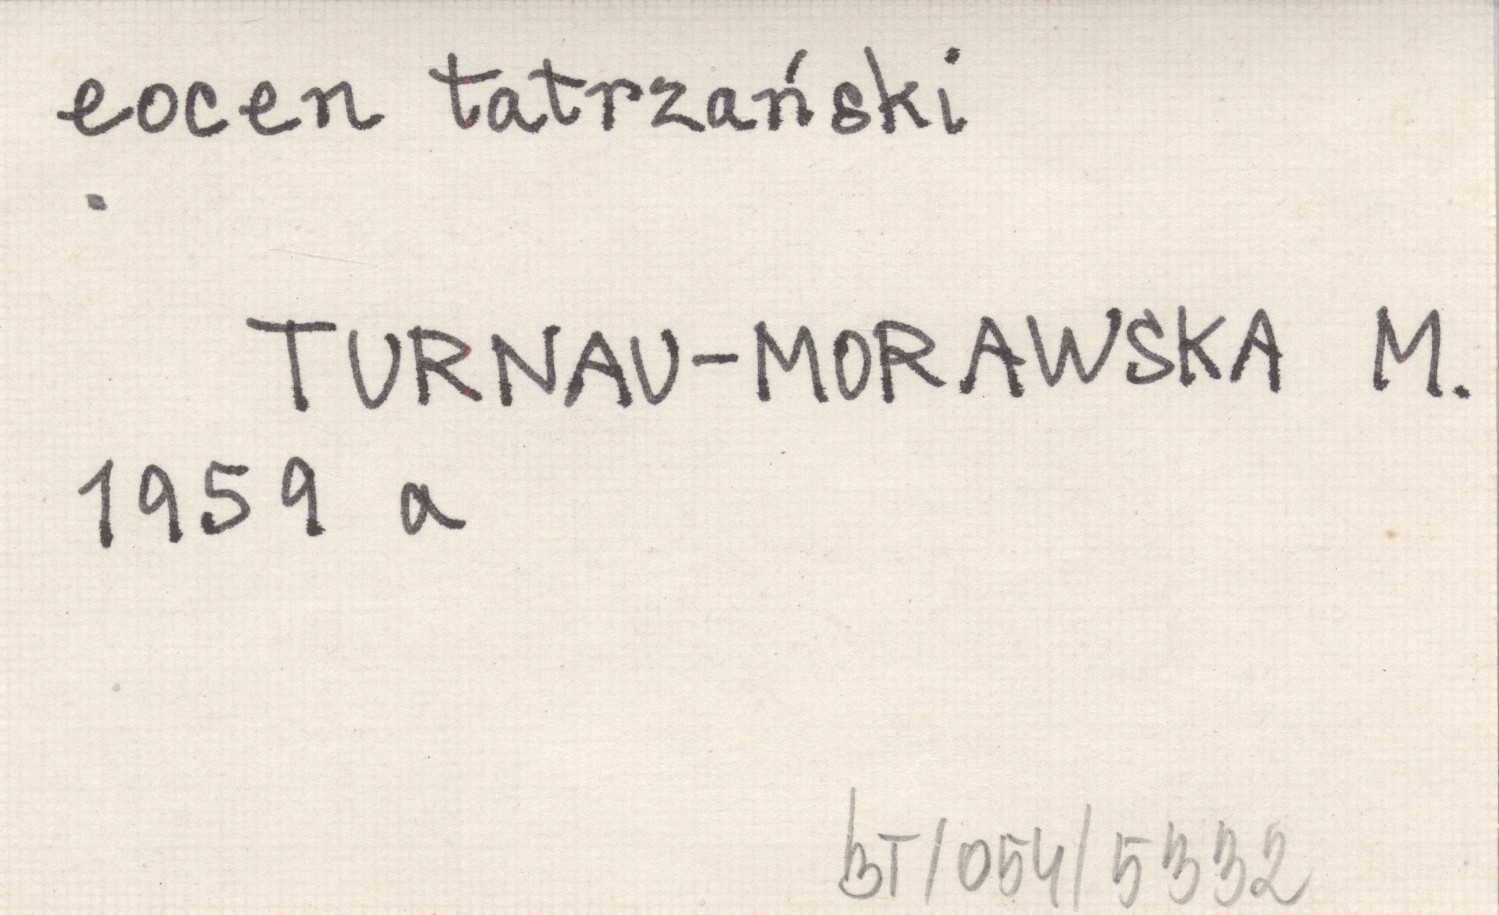 eocen tatrzański
TURNAU-MORAWSKA M.
1959 a
BT/054/5332